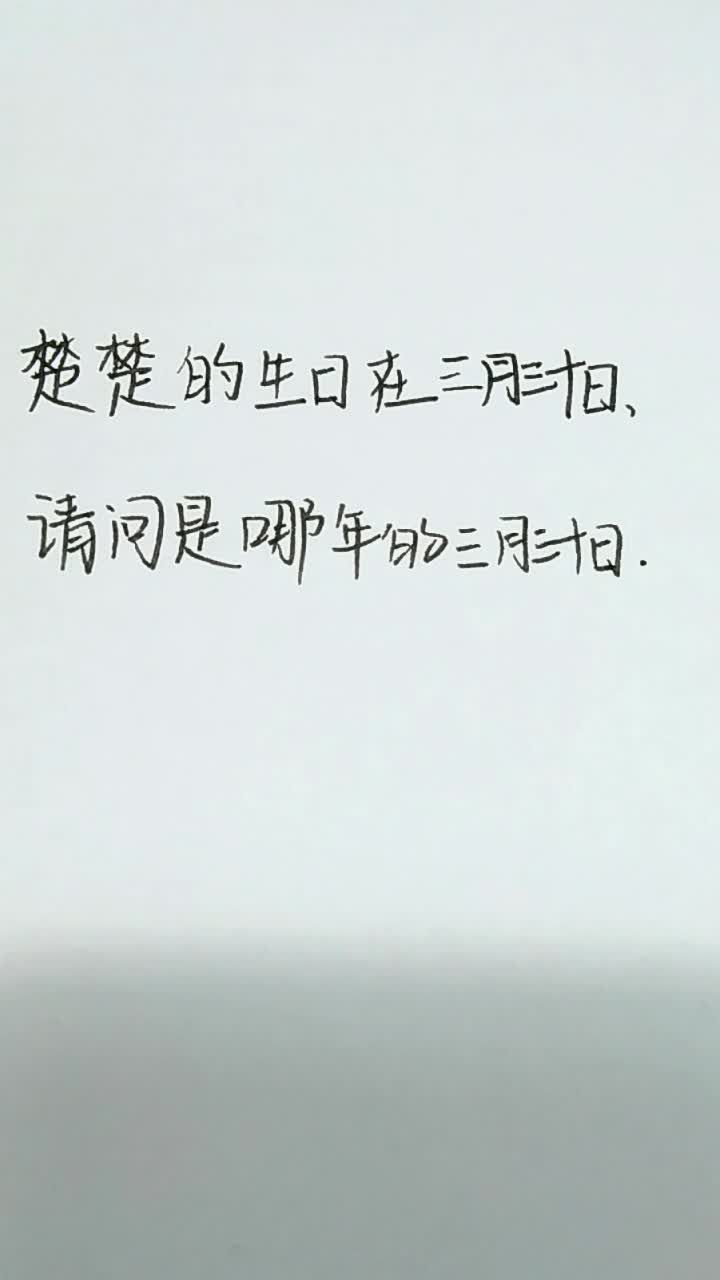 楚楚的生日在三月三十日、
请问是哪年的三月三十日.